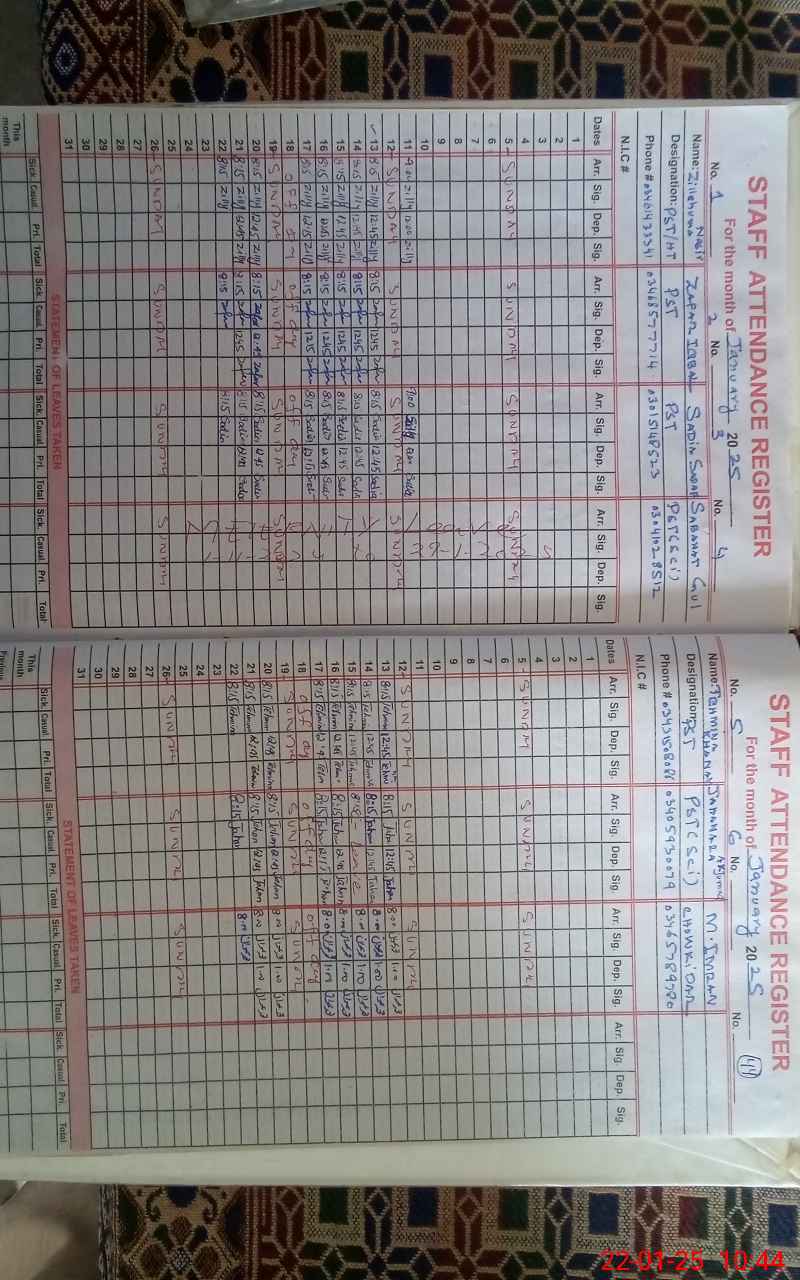 STAFF ATTENDANCE REGISTER
For the month of January 2025
No. 1 No. 2 No. 3 No. 4
Name: Zillehuma Nasir ZAFAR IQBAL SADIA SADAF SABAHAT GUL
Designation: PST/HT PST PST PST(Sci)
Phone # 03468577714 03015148523 03041028512
N.I.C #
Dates Arr. Sig. Dep. Sig. Arr. Sig. Dep. Sig. Arr. Sig. Dep. Sig. Arr. Sig. Dep. Sig.
1
2
3
4
5 SUNDAY SUNDAY SUNDAY SUNDAY
6
7
8
9
10
11 9:00 Zilly 12:00 Zilly 9:00 Sadia
12 SUNDAY SUNDAY SUNDAY SUNDAY
13 8:15 Zilly 12:45 Zilly 8:15 Zafar 12:45 Zafar 8:15 Sadia 12:45 Sadia
14 8:15 Zilly 12:45 Zilly 8:15 Zafar 12:45 Zafar 8:15 Sadia 12:45 Sadia
15 8:15 Zilly 12:45 Zilly 8:15 Zafar 12:45 Zafar 8:15 Sadia 12:45 Sadia
16 8:15 Zilly 12:45 Zilly 8:15 Zafar 12:45 Zafar 8:15 Sadia 12:45 Sadia
17 8:15 Zilly 12:15 Zilly 8:15 Zafar 12:15 Zafar 8:15 Sadia 12:15 Sadia
18 off day off day off day
19 SUNDAY SUNDAY SUNDAY SUNDAY
20 8:15 Zilly 12:45 Zilly 8:15 Zafar 12:45 Zafar 8:15 Sadia 12:45 Sadia
21 8:15 Zilly 12:45 Zilly 8:15 Zafar 12:45 Zafar 8:15 Sadia 12:45 Sadia
22 8:15 Zilly 8:15 Zafar 8:15 Sadia
23
24
25
26 SUNDAY SUNDAY SUNDAY SUNDAY
27
28
29
30
31
Maternity Leave
STATEMENT OF LEAVES TAKEN
Sick. Casual Pri. Total Sick. Casual Pri. Total Sick. Casual Pri. Total Sick. Casual Pri. Total
This month
STAFF ATTENDANCE REGISTER
For the month of January 2025
No. 5 No. 6 No. No. 44
Name: TEHMINA KHANAM JAHANARA ANJUM M. IMRAN
Designation: PST PST(Sci) CHOWKIDAR
Phone # 03405930079 03465789780
N.I.C #
Dates Arr. Sig. Dep. Sig. Arr. Sig. Dep. Sig. Arr. Sig. Dep. Sig. Arr. Sig. Dep. Sig.
1
2
3
4
5 SUNDAY SUNDAY SUNDAY
6
7
8
9
10
11
12 SUNDAY SUNDAY SUNDAY
13 8:15 Tehmina 12:45 8:15 Jahan 12:45 Jahan 8:00 عمران 1:00 عمران
14 8:15 Tehmina 12:45 Tehmina 8:15 Jahan 12:45 Jahan 8:00 عمران 1:00 عمران
15 8:15 Tehmina 12:45 Tehmina Leave 8:00 عمران 1:00 عمران
16 8:15 Tehmina 12:45 Tehmina 8:15 Jahan 12:45 Jahan 8:00 عمران 1:00 عمران
17 8:15 Tehmina 8:15 Jahan 12:15 Jahan 8:00 عمران 1:00 عمران
18 off day off day off day
19 SUNDAY SUNDAY SUNDAY
20 8:15 Tehmina 12:45 Tehmina 8:15 Jahan 12:45 Jahan 8:00 عمران 1:00 عمران
21 8:15 Tehmina 12:45 Tehmina 8:15 Jahan 12:45 Jahan 8:00 عمران 1:00 عمران
22 8:15 Tehmina 8:15 Jahan 8:00 عمران
23
24
25
26 SUNDAY SUNDAY SUNDAY
27
28
29
30
31
STATEMENT OF LEAVES TAKEN
Sick. Casual Pri. Total Sick. Casual Pri. Total Sick. Casual Pri. Total Sick. Casual Pri. Total
This month
Previous
22-01-25 10:44